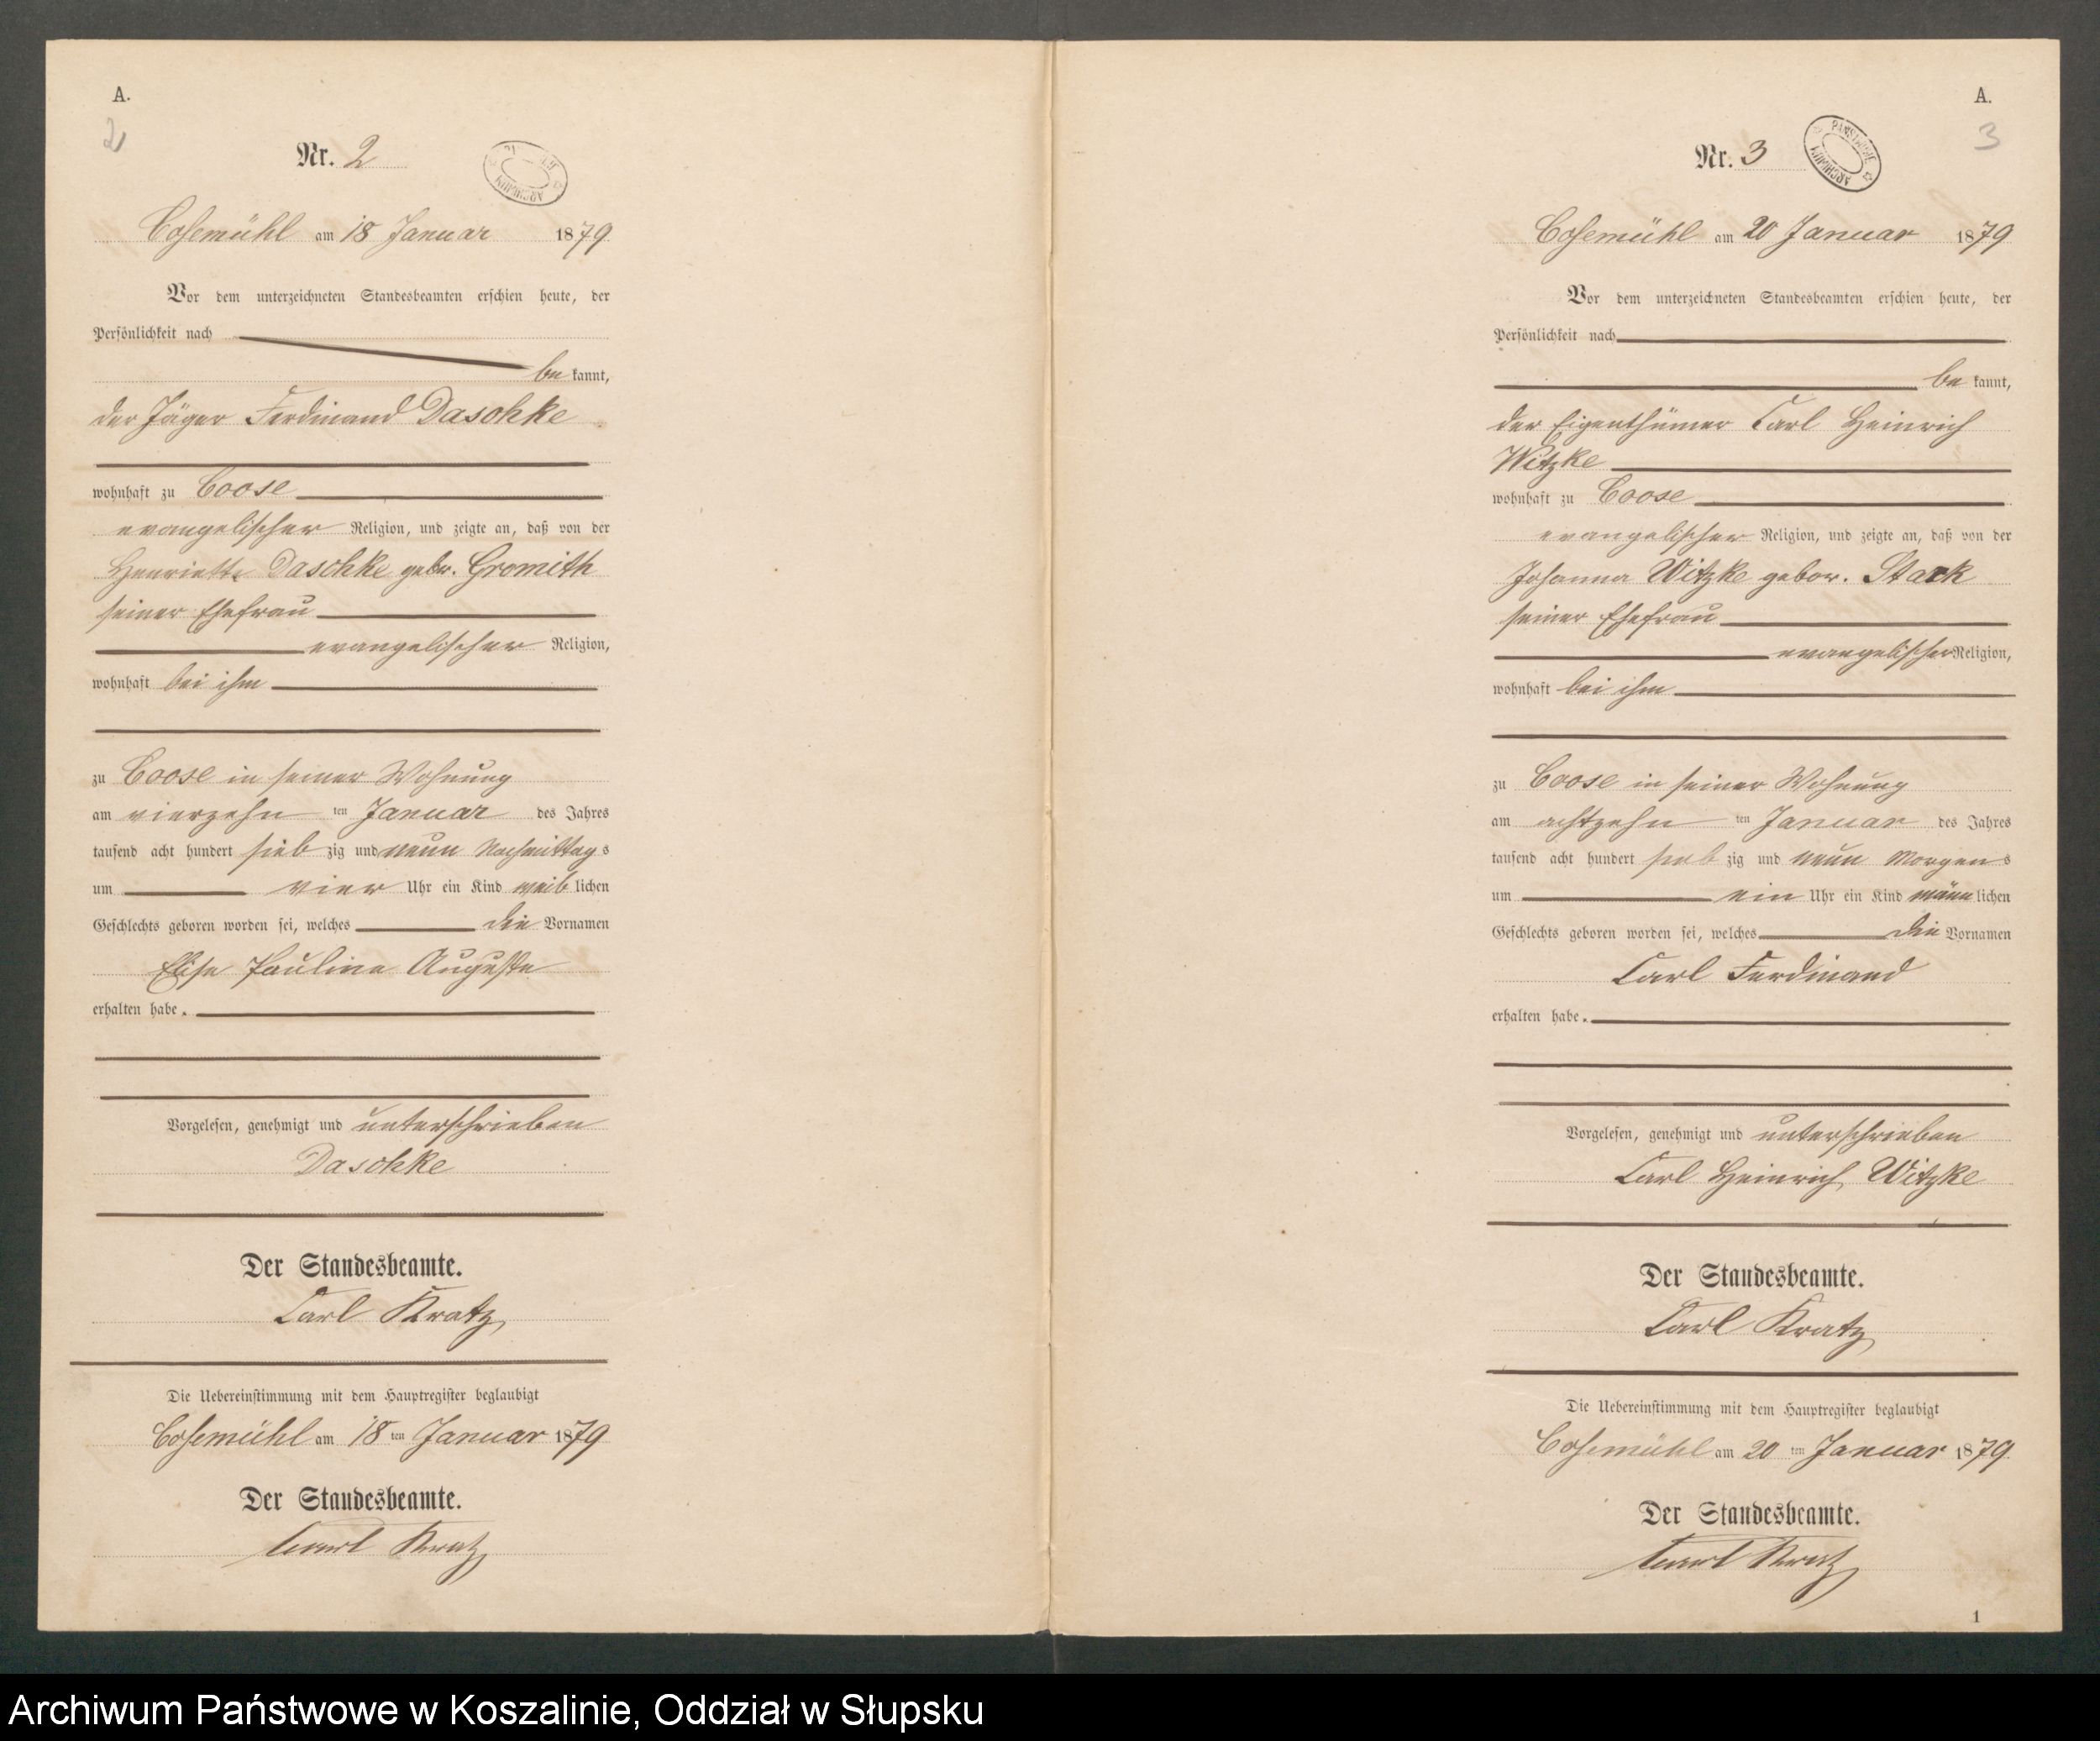 A.
2
Nr. 2
ARCHIWUM
Cosemühl am 18 Januar 1879
Vor dem unterzeichneten Standesbeamten erschien heute, der
Persönlichkeit nach
be kannt,
der Jäger Ferdinand Daschke
wohnhaft zu Coose
evangelischer Religion, und zeigte an, daß von der
Henriette Daschke gebor. Gromith
seiner Ehefrau
evangelischer Religion,
wohnhaft bei ihm
zu Coose in seiner Wohnung
am vierzehn ten Januar des Jahres
tausend acht hundert sieb zig und neun Nachmittag s
um vier Uhr ein Kind weib lichen
Geschlechts geboren worden sei, welches die Vornamen
Elise Pauline Auguste
erhalten habe.
Vorgelesen, genehmigt und unterschrieben
Daschke
Der Standesbeamte.
Carl Kratz
Die Uebereinstimmung mit dem Hauptregister beglaubigt
Cosemühl am 18 ten Januar 1879
Der Standesbeamte.
Carl Kratz
A.
3
Nr. 3
ARCHIWUM PAŃSTWOWE
Cosemühl am 20 Januar 1879
Vor dem unterzeichneten Standesbeamten erschien heute, der
Persönlichkeit nach
be kannt,
der Eigenthümer Carl Heinrich
Witzke
wohnhaft zu Coose
evangelischer Religion, und zeigte an, daß von der
Johanna Witzke gebor. Stark
seiner Ehefrau
evangelischer Religion,
wohnhaft bei ihm
zu Coose in seiner Wohnung
am achtzehn ten Januar des Jahres
tausend acht hundert sieb zig und neun Morgen s
um ein Uhr ein Kind männ lichen
Geschlechts geboren worden sei, welches die Vornamen
Carl Ferdinand
erhalten habe.
Vorgelesen, genehmigt und unterschrieben
Carl Heinrich Witzke
Der Standesbeamte.
Carl Kratz
Die Uebereinstimmung mit dem Hauptregister beglaubigt
Cosemühl am 20 ten Januar 1879
Der Standesbeamte.
Carl Kratz
1
Archiwum Państwowe w Koszalinie, Oddział w Słupsku